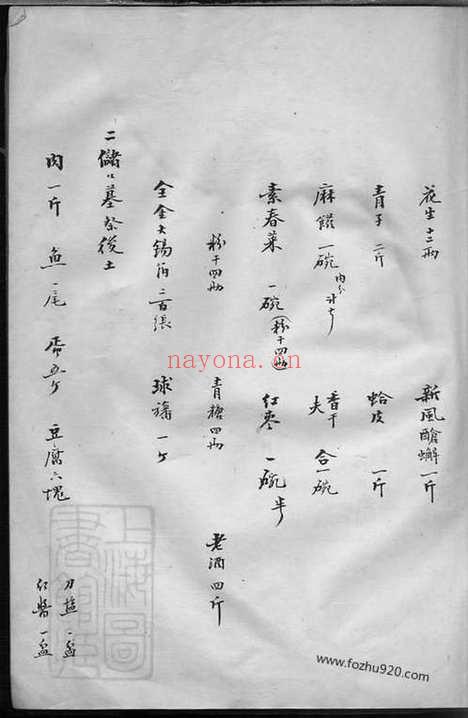 花生十二兩 新風醃蠏一斤
青子 二斤 蛤皮 一斤
麻餈一碗 香干 合一碗
素春菜 一碗(粉干四兩) 紅棗 一碗半
粉干四兩 青糖四兩 老酒四斤
全金大錫箔二百張 球 一个
二儲公墓祭後土
肉一斤 魚一尾 五个 豆腐六塊
刀 一盃
紅醬一盃
上海圖書館藏
nayona.cn
www.fozhu920.com